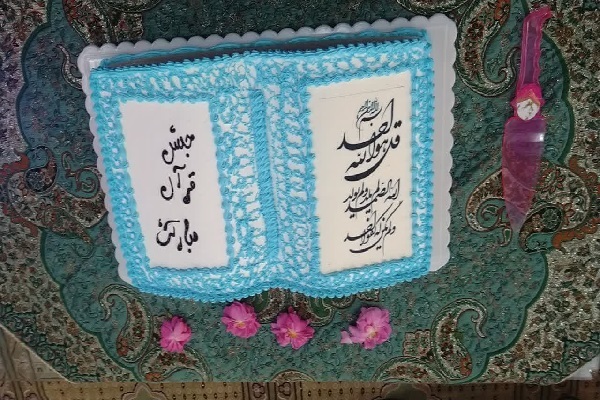 بسم الله الرحمن الرحیم
قل هو الله احد
الله الصمد لم یلد و لم یولد
و لم یکن له کفوا احد
جشن
قرآن
مبارک